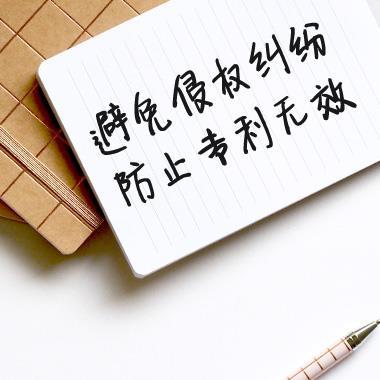 避免侵权纠纷
防止专利无效